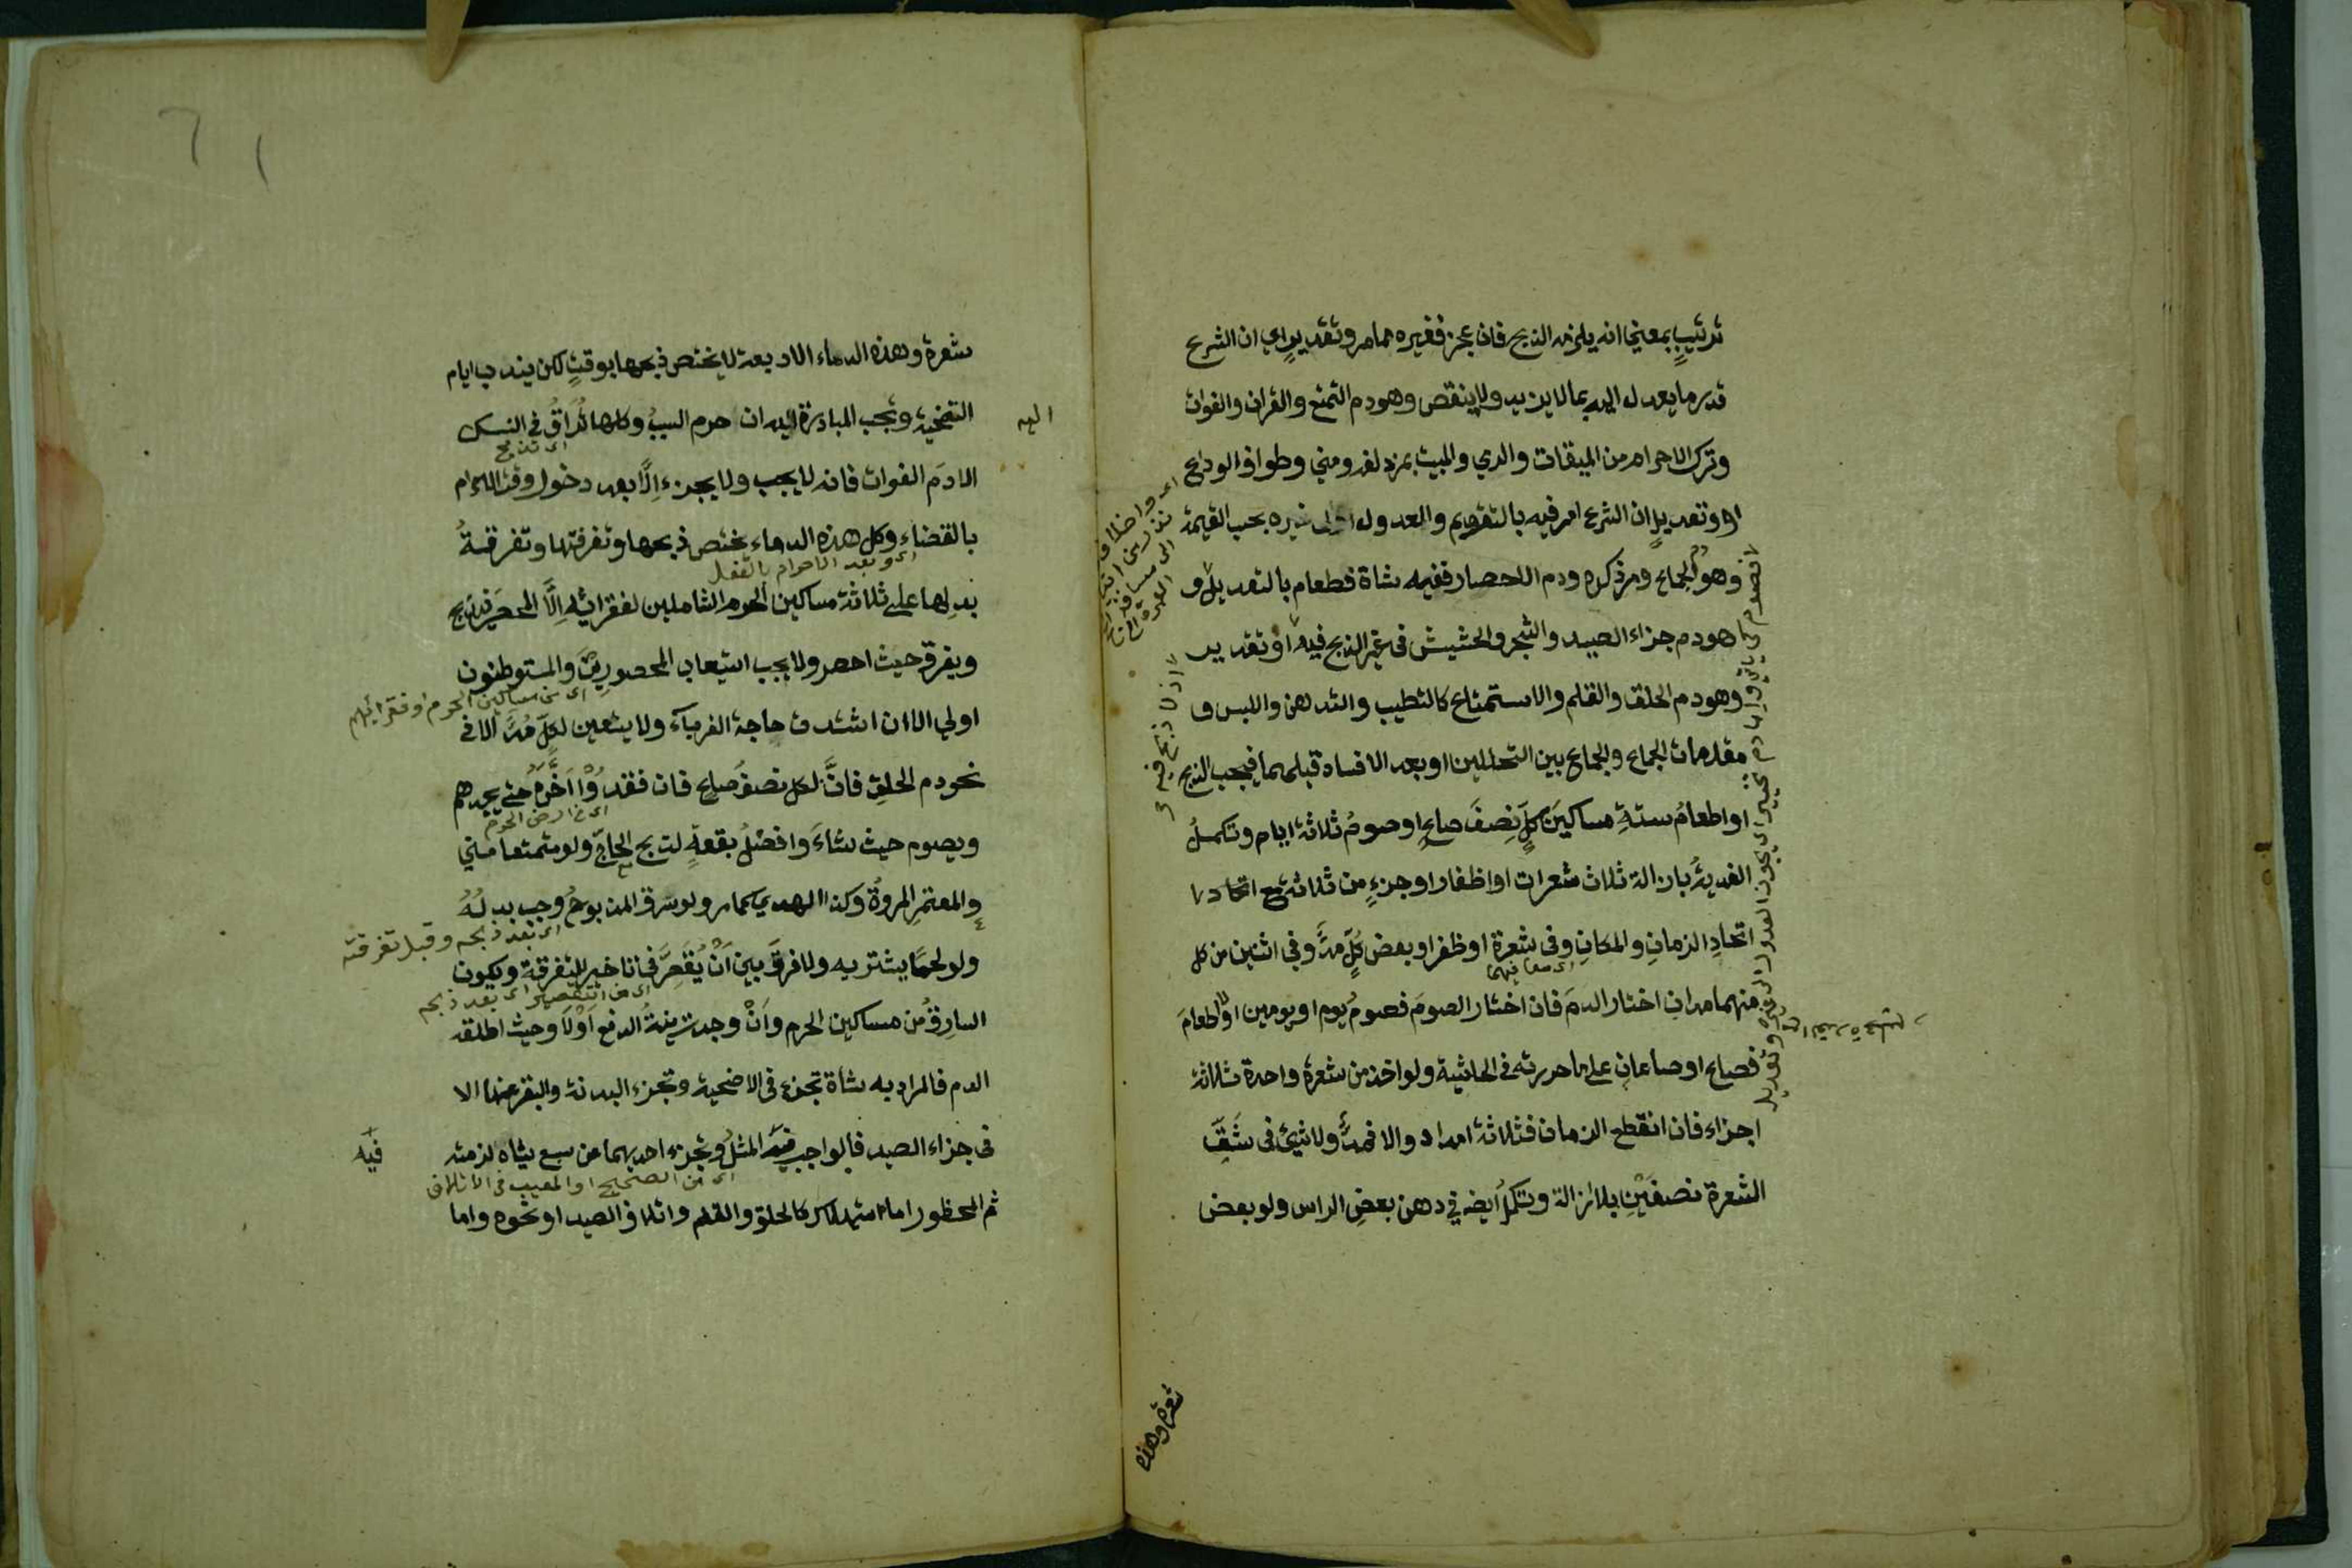 ترتيبٍ بمعنى انه يلزمه الذبح فان عجز فغيره مما مر وتقديرٍ اي ان الشرع
قدر ما يعدل اليه بما لا يزيد ولا ينقص وهو دم التمتع والقران والفوات
وترك الاحرام من الميقات والرمي والمبيت بمزدلفه ومنى وطواف الوداع
او وتعديلٍ ان الشرع امر فيه بالتقويم والعدول الى غيره بحسب القيمة
وهو دم الجماع ومر ذكره ودم الاحصار ففيه شاة فطعام بالتعديل و
هو دم جزاء الصيد والشجر والحشيش في غير الذبح فيه او تقدير
وهو دم الحلق والقلم والاستمتاع كالتطيب والتدهن واللبس و
مقدمات الجماع والجماع بين التحللين او بعد الافساد قبلهما فيجب الذبح
او اطعامُ ستةِ مساكينَ كلٍّ نِصفَ صاعٍ او صومُ ثلاثة ايام وتكملُ
الفديةُ بازالة ثلاث شعرات او اظفار او جزءٍ من ثلاثة مع اتحاد
اتحادِ الزمانِ والمكانِ وفي شعرة او ظفر او بعض كُلٍّ مدٌّ وفي اثنين من كل
منهما مدان اختار الدمَ فان اختار الصومَ فصومُ يوم او يومين او الطعامَ
فصاع او صاعان على ما حررته في الحاشية ولو اخذ من شعرة واحدة ثلاثة
اجزاء فان انقطع الزمان فثلاثة امداد والا فمدٌّ ولا شيئ في شَقِّ
الشعرة نصفَيْنِ بلا ازالة وتكمل ايضه في دهن بعضِ الراس ولو بعض
شعرة وهذه
شعرة وهذه الدماء الاربعة لا يختص ذبحها بوقتٍ لكن يندب ايام
التضحية وتجب المبادرة اليه ان حرم السببُ وكلها تُراقُ في النسك
اليه
اى تذبح
الا دمَ الفوات فانه لا يجب ولا يجزء اِلَّا بعد دخول وقت الاحرام
بالقضاء وكل هذه الدماء يختص ذبحها وتفرقتها وتفرقةُ
اى وبعد الاحرام بالفعل
بدلِها على ثلاثة مساكين الحرم الشاملين لفقرائه اِلَّا المحصَر فيذبح
ويفرق حيث احصر ولا يجب استيعاب المحصورين والمستوطنون
اى من مساكين الحرم او فقرائهم
اولى الا ان اشتدت حاجة الغرباء ولا يتعين لكلٍّ مُدٌّ الا في
نحو دم الحلق فانَّ لكل نصفَ صاعٍ فان فقدُوْا اَخَّرَهُ حتى يجدهم
اى من ارض الحرم
ويصوم حيث شاءَ وافضلُ بقعةٍ لذبح الحاجِّ ولو متمتعا منى
والمعتمرِ المروةُ وكذا الهدي كما مر ولو سُرق المذبوحُ وجب بدلُهُ
اى بعد ذبحه وقبل تفرقته
ولو لحمًا يشتريه ولا فرقَ بين اَنْ يُقَصِّرَ في تاخير التفرقة ويكون
اى من التقصير اى بعد ذبحه
السارقُ من مساكين الحرم واَنْ وجدت نيةُ الدفع اَوْ لا وحيث اطلقه
الدم فالمراد به شاة تجزء في الاضحية وتجزء البدنة والبقر عنها الا
في جزاء الصيد فالواجب فيه المثلُ وتجزء احديهما عن سبع شياه لزمته
فيه
اى من الصحيح او المعيب في الاتلاف
ثم المحظور اما استهلاك كالحلق والقلم واتلاف الصيد او نحوه واما